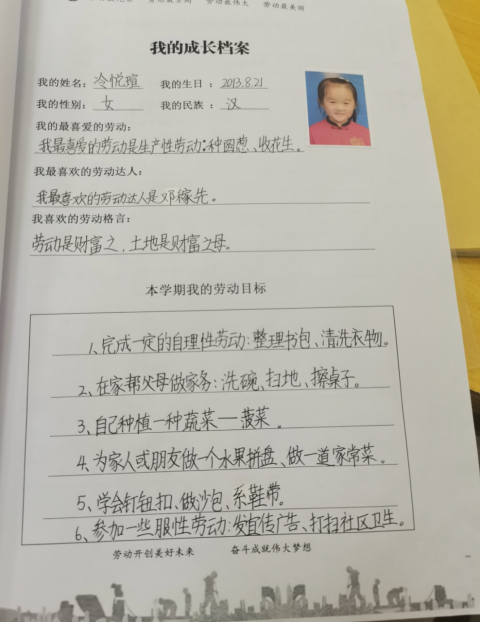 劳动最伟大 劳动最美丽
我的成长档案
我的姓名：冷悦瑄 我的生日：2013.8.21
我的性别：女 我的民族：汉
我的最喜爱的劳动：
我最喜爱的劳动是生产性劳动：种圆葱、收花生。
我最喜欢的劳动达人：
我最喜欢的劳动达人是邓稼先。
我喜欢的劳动格言：
劳动是财富之，土地是财富之母。
本学期我的劳动目标
1、完成一定的自理性劳动：整理书包、清洗衣物。
2、在家帮父母做家务：洗碗、扫地、擦桌子。
3、自己种植一种蔬菜——菠菜。
4、为家人或朋友做一个水果拼盘、做一道家常菜。
5、学会钉钮扣、做沙包、系鞋带。
6、参加一些服性劳动：发宣传广告、打扫社区卫生。
劳动开创美好未来 奋斗成就伟大梦想